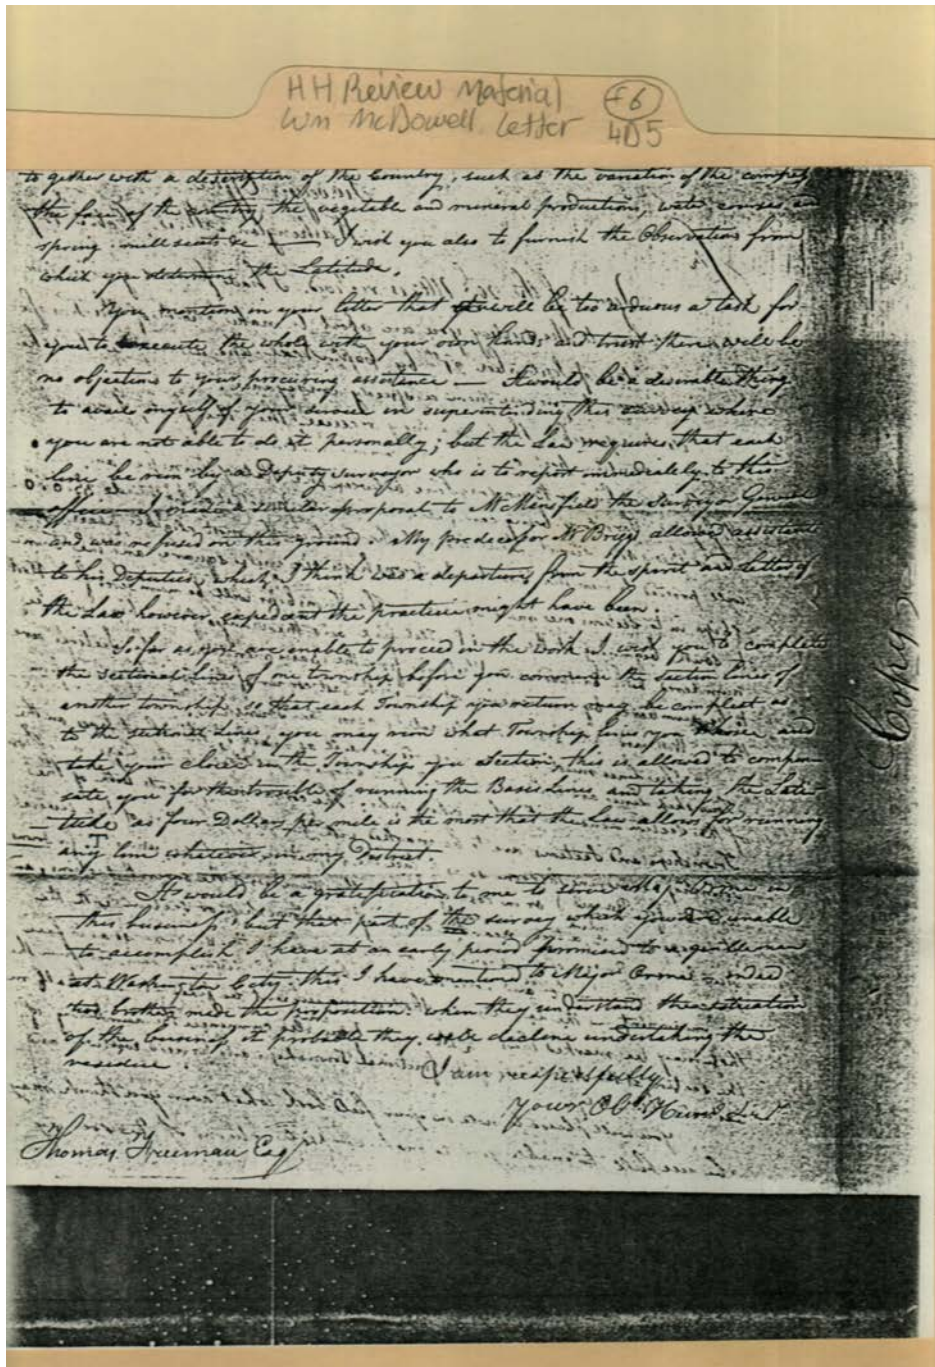 HH Review Material
Wm McDowell Letter
F6
4D5
to gether with a description of the Country, such as the variation of the compass
the face of the country, the vegetable and mineral productions, water courses
spring mill seats &c — I wish you also to furnish the Observations from
which you determine the Latitude.
You mention in your letter that it will be too arduous a task for
you to execute the whole with your own hands and trust there will be
no objections to your procuring assistance — It would be a desirable thing
to avail myself of your service in superintending this survey where
you are not able to do it personally; but the Law requires that each
line be run by a Deputy Surveyor who is to report immediately to this
office — I made a similar proposal to Mr Mansfield the Surveyor General
and was refused on this ground. My predecessor Mr Briggs allowed assistants
to his Deputies, which I think was a departure from the spirit and letter of
the Law however expedient the practice might have been.
So far as you are enable to proceed in the work I wish you to complete
the sectional lines of one township before you commence the Section lines of
another township so that each Township you return may be compleat as
to the sectional Lines, you may run what Township lines you choose and
take your choice in the Township you Section, this is allowed to compen
sate you for the trouble of running the Basis Lines, and taking the Lati-
tude as four Dollars per mile is the most that the Law allows for running
any line whatever in my District.
It would be a gratification to me to serve
this business, but that part of the survey which you are unable
to accomplish I have at an early period promised to a gentleman
at Washington City this I have mentioned to Major indeed
his brother made the proposition. when they understand the situation
of the business it probable they will decline undertaking the
residue.
I am, respectfully
Your Obt Humb. Sert
Thomas Freeman Esq
Copy